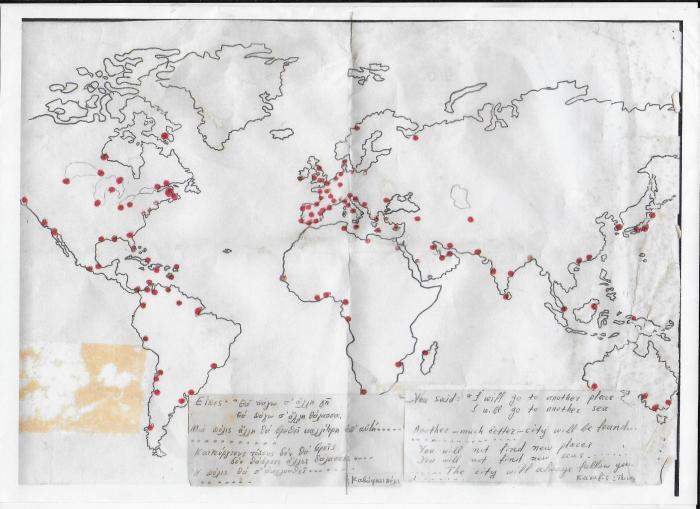 Είπες· "Θά πάγω σ' άλλη γῆ
θά πάγω σ' άλλη θάλασσα,
Μιά πόλις άλλη θά βρεθεῖ καλλίτερη ἀπ' αὐτή
Καινούργιους τόπους δέν θά βρεῖς
δέν θάβρεις άλλες θάλασσες
Η πόλις θά σ' ἀκολουθεῖ
You said: "I will go to another place
I will go to another sea
Another-much better-city will be found...
You will not find new places
You will not find new seas
The city will always follow you.